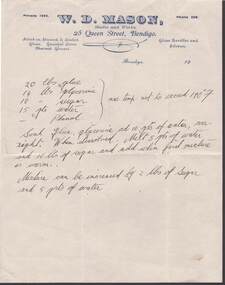 W. D. MASON,
25 Queen Street, Bendigo.
Bendigo, 19
20 lbs glue
14 lbs glycerine
10 " sugar
15 pts water
" Phenol
temp not to exceed 190° F
Soak glue, glycerine in 10 pts of water, over
night. When dissolved, Melt 5 pts of water
and 10 lbs of sugar and add when first mixture
is warm.
Mixture can be increased by 2 lbs of Sugar
and 5 pts of water